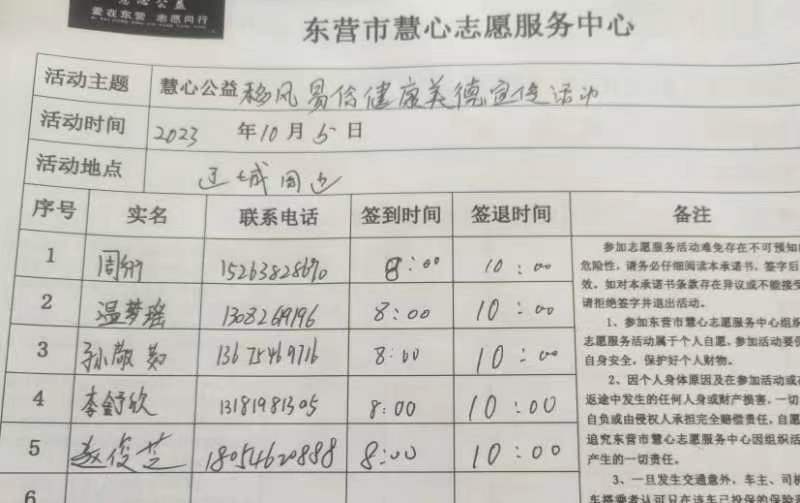 爱在东营 志愿同行
东营市慧心志愿服务中心
活动主题 慧心公益移风易俗健康美德宣传活动
活动时间 2023 年10月5日
活动地点 周边
序号 实名 联系电话 签到时间 签退时间 备注
1 周 15263828690 8:00 10:00
2 温梦瑶 1308269196 8:00 10:00
3 孙敬茹 13675469716 8:00 10:00
4 李舒欣 13181981305 8:00 10:00
5 赵俊芝 18054620888 8:00 10:00
6
参加志愿服务活动难免存在不可预知
危险性，请务必仔细阅读本承诺书，签字后
效。如对本承诺书条款存在异议或不能接受
请拒绝签字并退出活动。
1、参加东营市慧心志愿服务中心组织
志愿服务活动属于个人自愿，参加活动要
自身安全，保护好个人财物。
2、因个人身体原因及在参加活动或
返途中发生的任何人身或财产损害，一切
自负或由侵权人承担完全赔偿责任，自愿
追究东营市慧心志愿服务中心因组织活
产生的一切责任。
3、一旦发生交通意外，车主、司机
车搭乘者认可只在该车已投保的保险